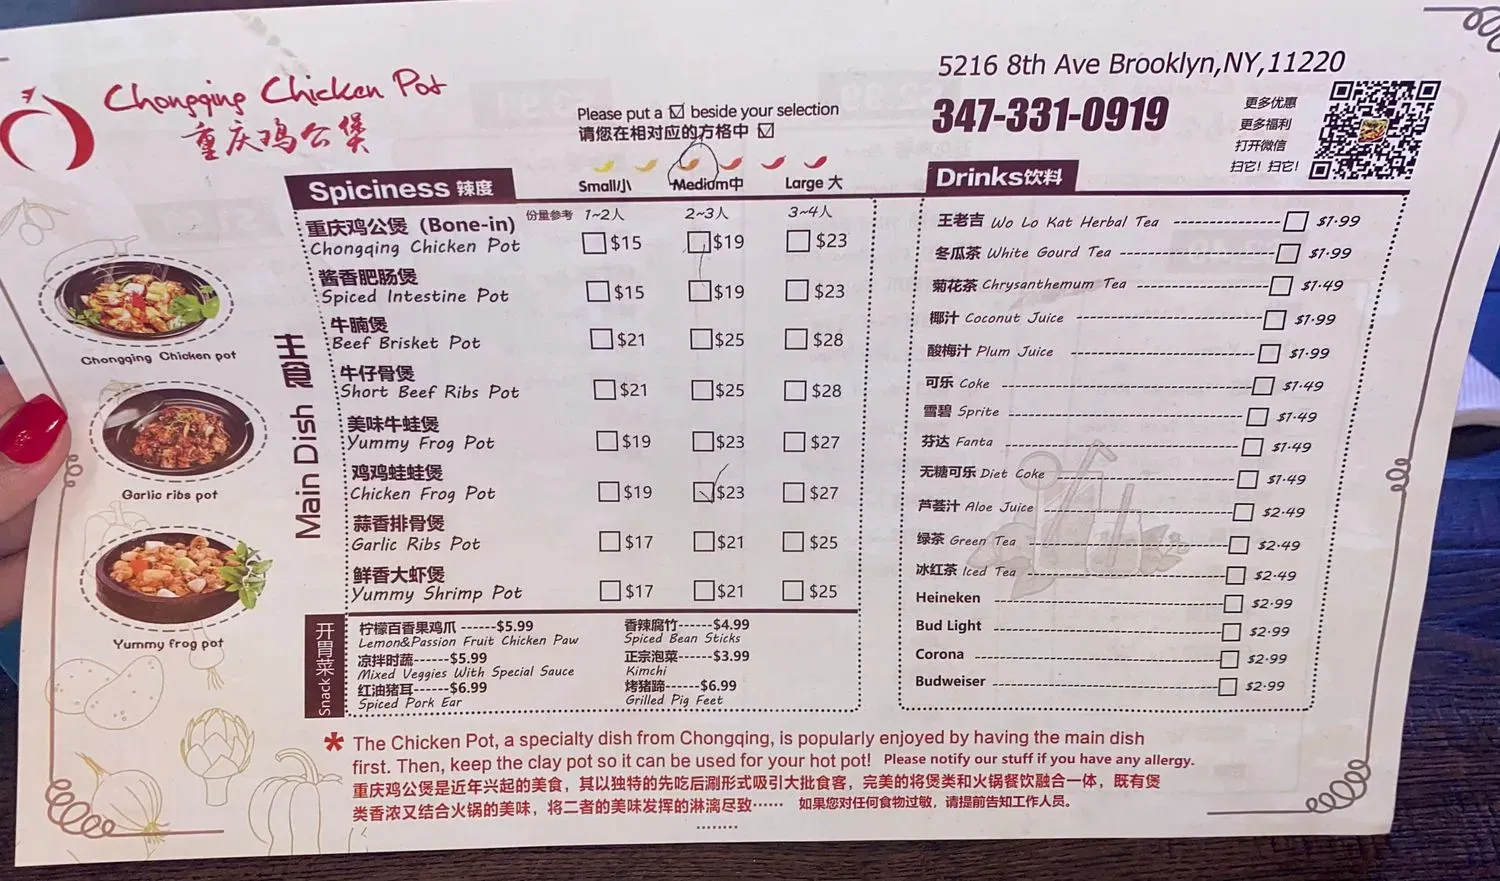 Chongqing Chicken Pot
重庆鸡公煲
Please put a ☑ beside your selection
请您在相对应的方格中 ☑
5216 8th Ave Brooklyn,NY,11220
347-331-0919
更多优惠
更多福利
打开微信
扫它！扫它！
Spiciness 辣度
Small/小 Medium中 Large 大
份量参考 1~2人 2~3人 3~4人
Main Dish 主食
重庆鸡公煲（Bone-in)
Chongqing Chicken Pot $15 $19 $23
酱香肥肠煲
Spiced Intestine Pot $15 $19 $23
牛腩煲
Beef Brisket Pot $21 $25 $28
牛仔骨煲
Short Beef Ribs Pot $21 $25 $28
美味牛蛙煲
Yummy Frog Pot $19 $23 $27
鸡鸡蛙蛙煲
Chicken Frog Pot $19 $23 $27
蒜香排骨煲
Garlic Ribs Pot $17 $21 $25
鲜香大虾煲
Yummy Shrimp Pot $17 $21 $25
Chongqing Chicken pot
Garlic ribs pot
Yummy frog pot
开胃菜 Snack
柠檬百香果鸡爪 ------$5.99
Lemon&Passion Fruit Chicken Paw
凉拌时蔬------$5.99
Mixed Veggies With Special Sauce
红油猪耳------$6.99
Spiced Pork Ear
香辣腐竹------$4.99
Spiced Bean Sticks
正宗泡菜------$3.99
Kimchi
烤猪蹄------$6.99
Grilled Pig Feet
Drinks饮料
王老吉 Wo Lo Kat Herbal Tea $1.99
冬瓜茶 White Gourd Tea $1.99
菊花茶 Chrysanthemum Tea $1.49
椰汁 Coconut Juice $1.99
酸梅汁 Plum Juice $1.99
可乐 Coke $1.49
雪碧 Sprite $1.49
芬达 Fanta $1.49
无糖可乐 Diet Coke $1.49
芦荟汁 Aloe Juice $2.49
绿茶 Green Tea $2.49
冰红茶 Iced Tea $2.49
Heineken $2.99
Bud Light $2.99
Corona $2.99
Budweiser $2.99
* The Chicken Pot, a specialty dish from Chongqing, is popularly enjoyed by having the main dish
first. Then, keep the clay pot so it can be used for your hot pot! Please notify our stuff if you have any allergy.
重庆鸡公煲是近年兴起的美食，其以独特的先吃后涮形式吸引大批食客，完美的将煲类和火锅餐饮融合一体，既有煲
类香浓又结合火锅的美味，将二者的美味发挥的淋漓尽致…… 如果您对任何食物过敏，请提前告知工作人员。